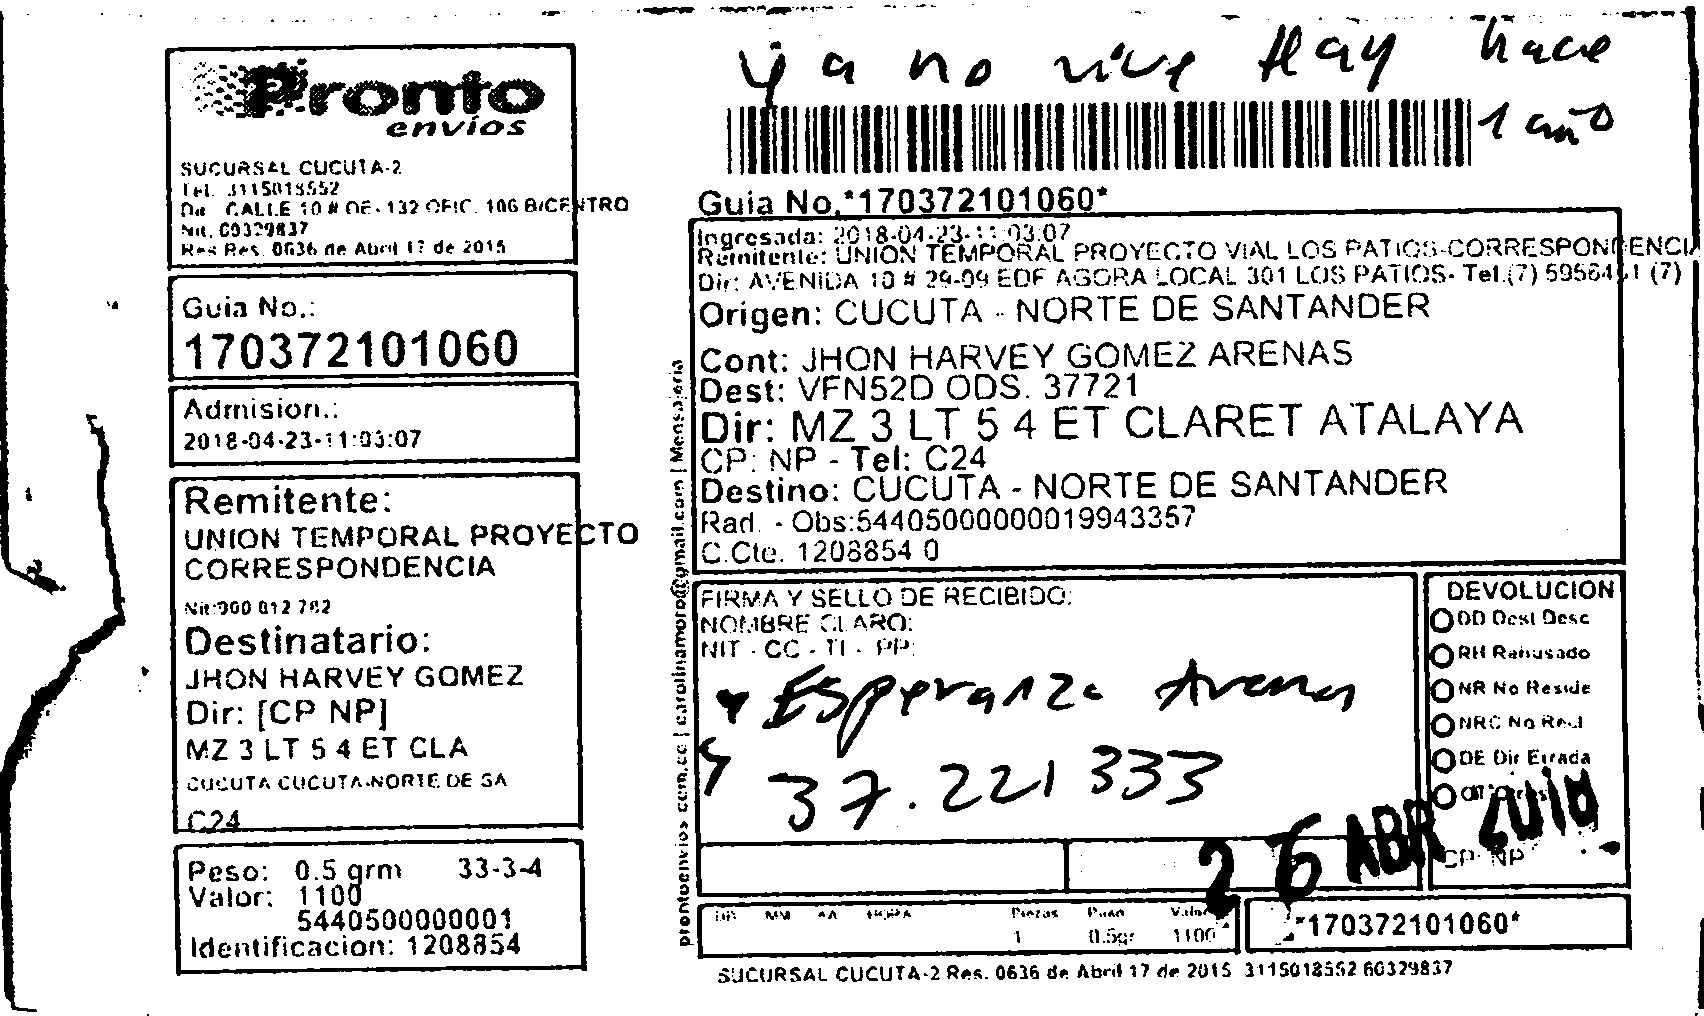 Pronto
envíos
SUCURSAL CUCUTA-2
Tel. 3115018552
Dir. CALLE 10 # OE- 132 OFIC. 106 B/CENTRO
Nit. 60329837
Res Res. 0636 de Abril 17 de 2015
Guia No.:
170372101060
Admision.:
2018-04-23-11:03:07
Remitente:
UNION TEMPORAL PROYECTO
CORRESPONDENCIA
Nit:900 812 782
Destinatario:
JHON HARVEY GOMEZ
Dir: [CP NP]
MZ 3 LT 5 4 ET CLA
CUCUTA CUCUTA-NORTE DE SA
C24
Peso: 0.5 grm 33-3-4
Valor: 1100
5440500000001
Identificacion: 1208854
prontoenvios.com.co | carolinamoro@gmail.com | Mensajeria
ya no vive Hay hace
1 año
Guia No.*170372101060*
Ingresada: 2018-04-23-11:03:07
Remitente: UNION TEMPORAL PROYECTO VIAL LOS PATIOS-CORRESPONDENCIA
Dir: AVENIDA 10 # 29-09 EDF AGORA LOCAL 301 LOS PATIOS- Tel.(7) 5956411 (7)
Origen: CUCUTA - NORTE DE SANTANDER
Cont: JHON HARVEY GOMEZ ARENAS
Dest: VFN52D ODS. 37721
Dir: MZ 3 LT 5 4 ET CLARET ATALAYA
CP: NP - Tel: C24
Destino: CUCUTA - NORTE DE SANTANDER
Rad. - Obs:544050000000019943357
C.Cte. 1208854 0
FIRMA Y SELLO DE RECIBIDO:
NOMBRE CLARO:
NIT - CC - TI - PP:
Esperanza Arenas
37.221333
DEVOLUCION
DD Dest Desc
RH Rehusado
NR No Reside
NRC No Recl
DE Dir Errada
CP: NP
26 ABR 2018
DD MM AA HORA Piezas Peso Valor
1 0.5gr 1100
*170372101060*
SUCURSAL CUCUTA-2 Res. 0636 de Abril 17 de 2015 3115018552 60329837